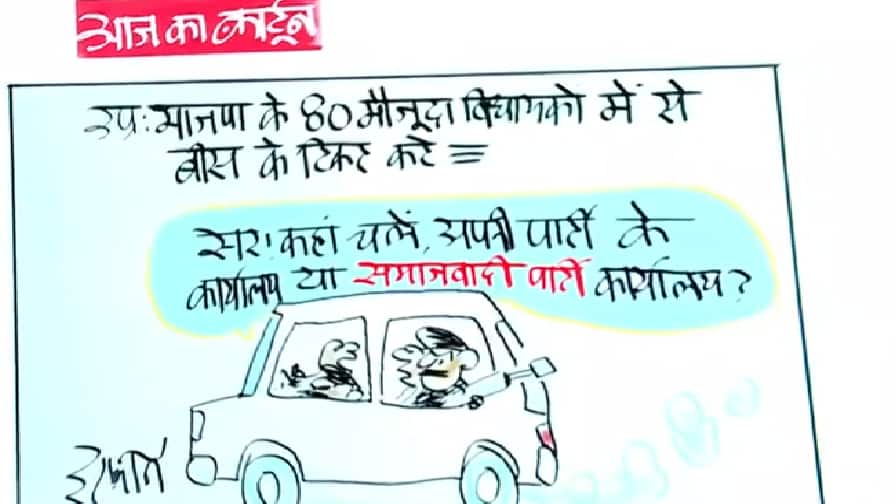 आज का कार्टून
उप्र: भाजपा के 80 मौजूदा विधायको में से
बीस के टिकट कटे
सर! कहां चलें, अपनी पार्टी के
कार्यालय या समाजवादी पार्टी कार्यालय?
इरफान